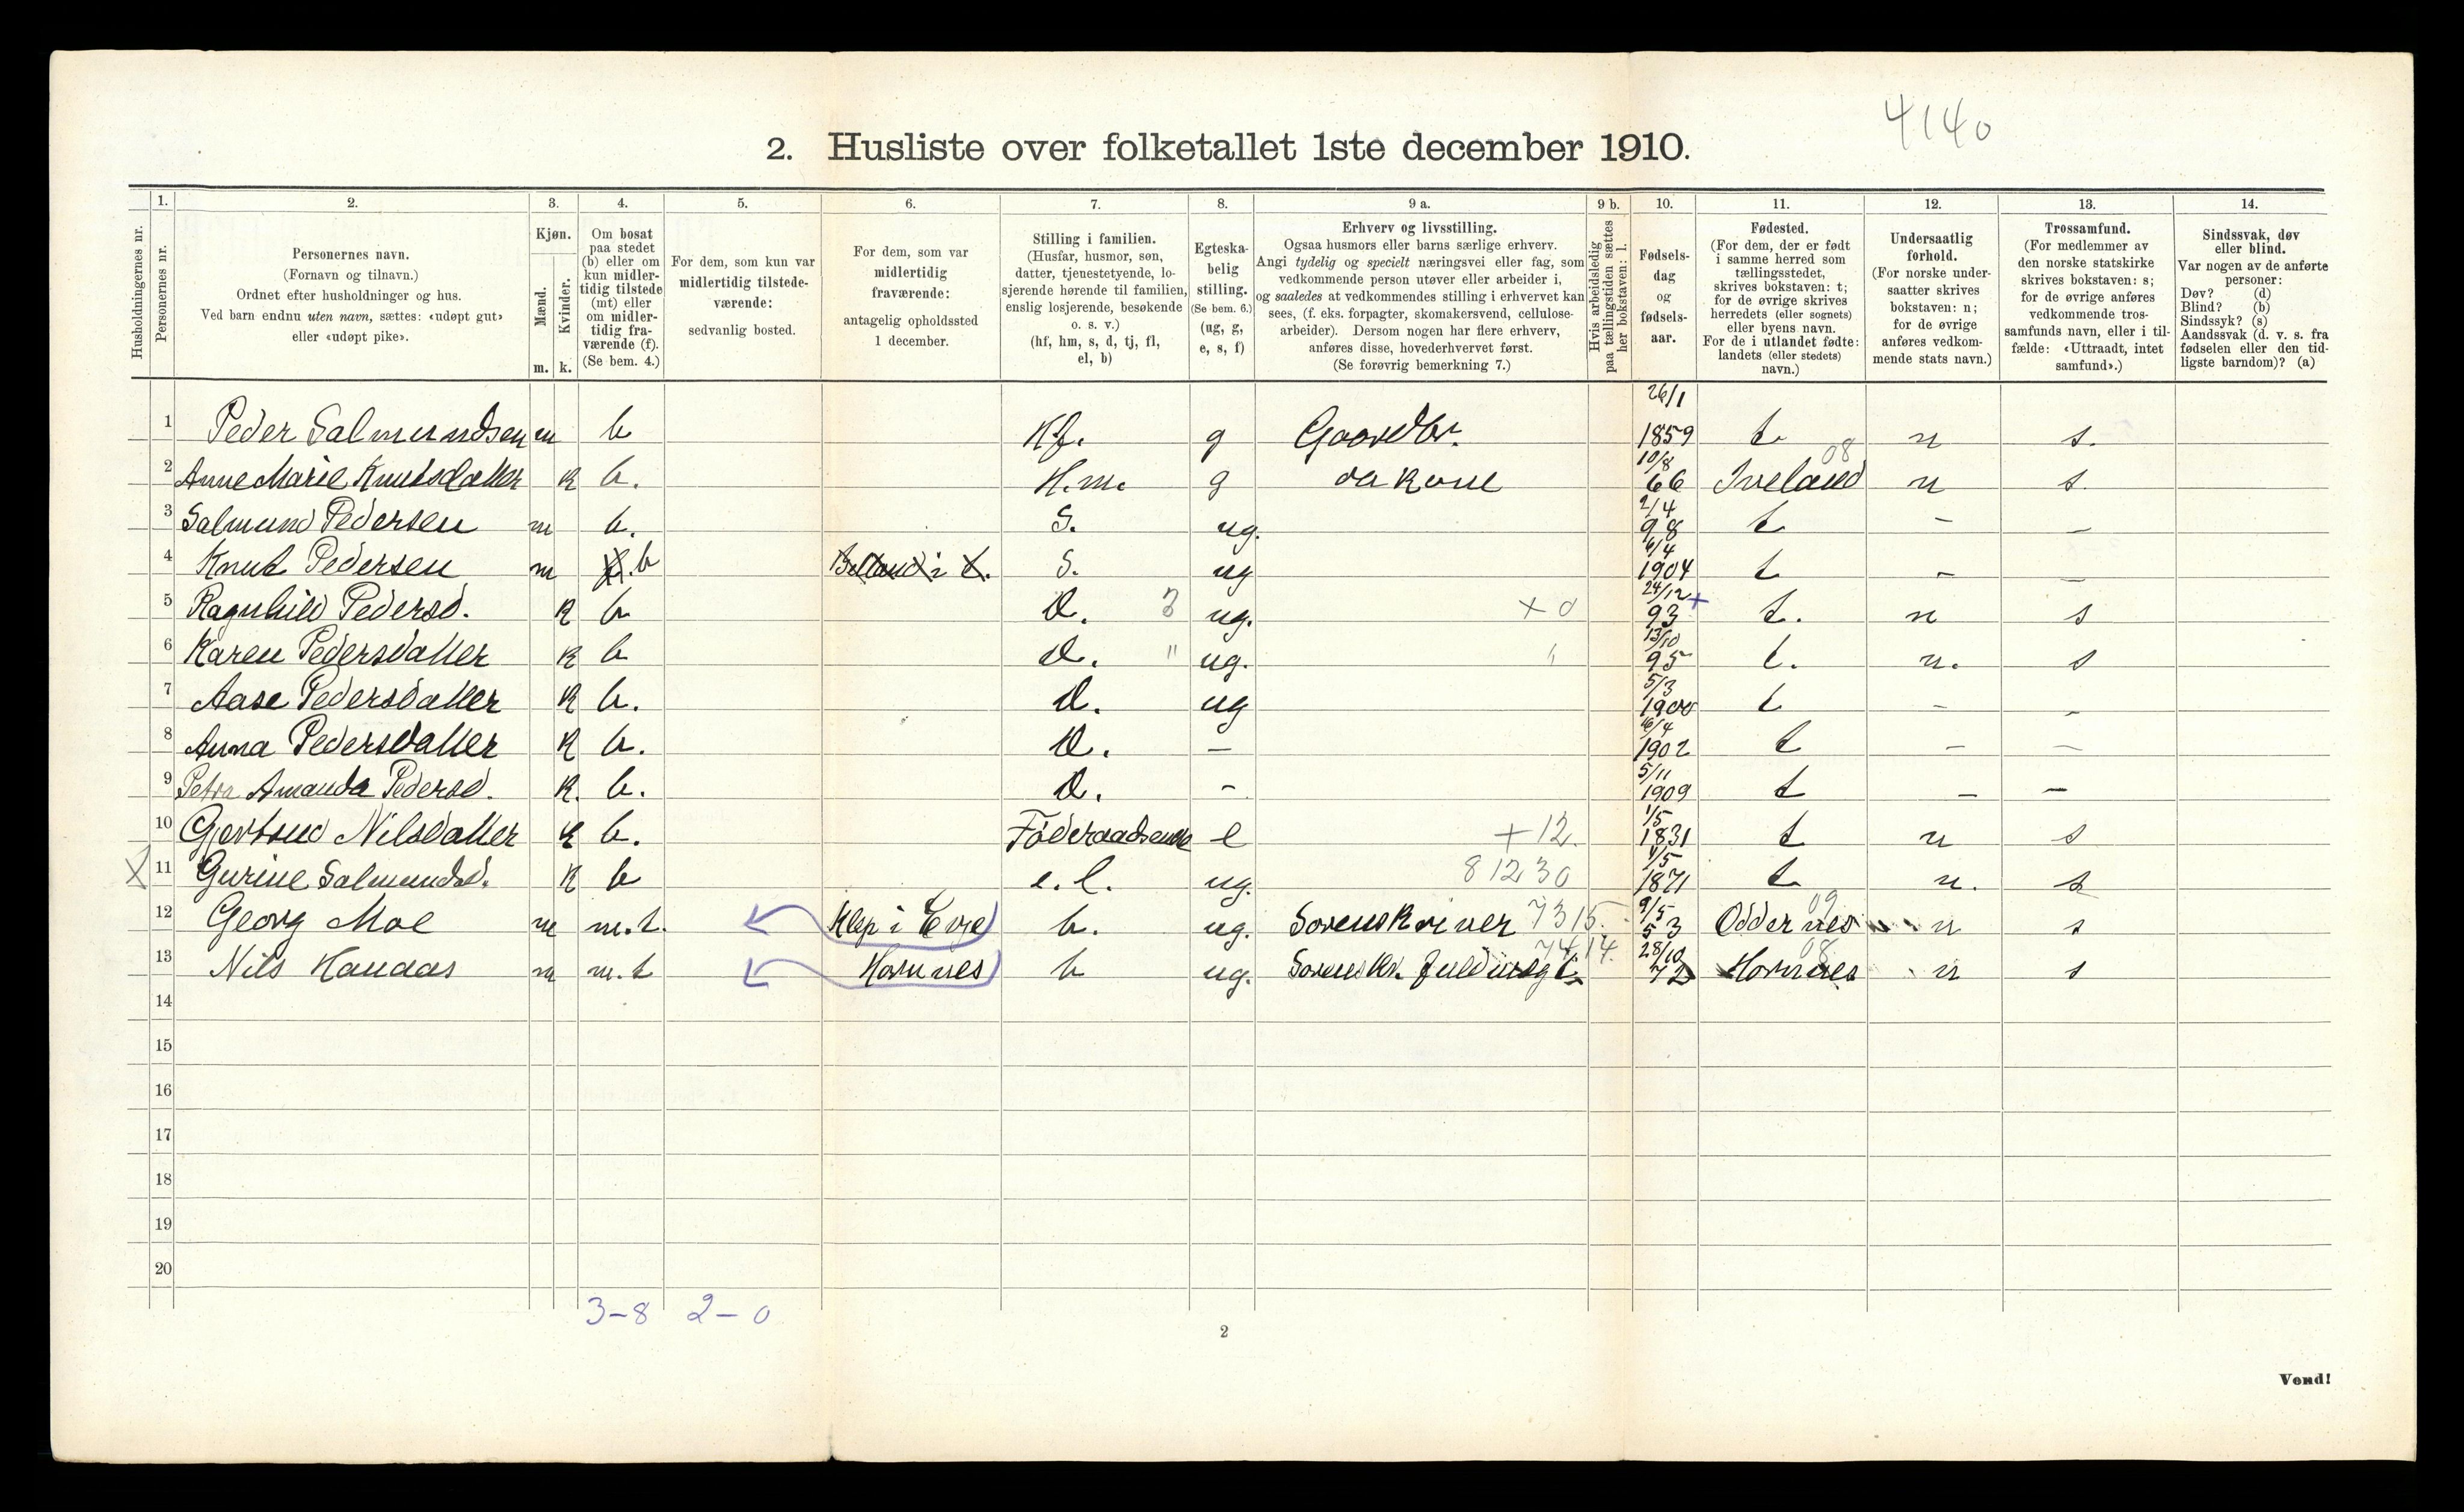 4140
2. Husliste over folketallet 1ste december 1910.
Husholdningernes nr.
1.
Personernes nr.
2.
Personernes navn.
(Fornavn og tilnavn.)
Ordnet efter husholdninger og hus.
Ved barn endnu uten navn, sættes: «udøpt gut»
eller «udøpt pike».
3.
Kjøn.
Mænd.
Kvinder.
m. k.
4.
Om bosat
paa stedet
(b) eller om
kun midler-
tidig tilstede
(mt) eller
om midler-
tidig fra-
værende (f).
(Se bem. 4.)
5.
For dem, som kun var
midlertidig tilstede-
værende:
sedvanlig bosted.
6.
For dem, som var
midlertidig
fraværende:
antagelig opholdssted
1 december.
7.
Stilling i familien.
(Husfar, husmor, søn,
datter, tjenestetyende, lo-
sjerende hørende til familien,
enslig losjerende, besøkende
o. s. v.)
(hf, hm, s, d, tj, fl,
el, b)
8.
Egteska-
belig
stilling.
(Se bem. 6.)
(ug, g,
e, s, f)
9 a.
Erhverv og livsstilling.
Ogsaa husmors eller barns særlige erhverv.
Angi tydelig og specielt næringsvei eller fag, som
vedkommende person utøver eller arbeider i,
og saaledes at vedkommendes stilling i erhvervet kan
sees, (f. eks. forpagter, skomakersvend, cellulose-
arbeider). Dersom nogen har flere erhverv,
anføres disse, hovederhvervet først.
(Se forøvrig bemerkning 7.)
9 b.
Hvis arbeidsledig
paa tællingstiden sættes
her bokstaven: l.
10.
Fødsels-
dag
og
fødsels-
aar.
11.
Fødested.
(For dem, der er født
i samme herred som
tællingsstedet,
skrives bokstaven: t;
for de øvrige skrives
herredets (eller sognets)
eller byens navn.
For de i utlandet fødte:
landets (eller stedets)
navn.)
12.
Undersaatlig
forhold.
(For norske under-
saatter skrives
bokstaven: n;
for de øvrige
anføres vedkom-
mende stats navn.)
13.
Trossamfund.
(For medlemmer av
den norske statskirke
skrives bokstaven: s;
for de øvrige anføres
vedkommende tros-
samfunds navn, eller i til-
fælde: «Uttraadt, intet
samfund».)
14.
Sindssvak, døv
eller blind.
Var nogen av de anførte
personer:
Døv? (d)
Blind? (b)
Sindssyk? (s)
Aandssvak (d. v. s. fra
fødselen eller den tid-
ligste barndom)? (a)
1 Peder Salmundsen m b Hf. g Gaardbr. 26/1 1859 t. n s.
2 Anne Marie Knutsdatter k b. H.m. g da kone 10/8 66 Iveland 08 n s.
3 Salmund Pedersen m b. S. ug. 2/4 98 t – –
4 Knut Pedersen m f. b i t. S. ug 6/4 1904 t – –
5 Ragnhild Pedersd. k b D. 3 ug. + 0 24/12 93 + t. n s
6 Karen Pedersdatter k b D. " ug. " 13/10 95 t. n. s
7 Aase Pedersdatter k b. D. ug 5/3 1900 t – –
8 Anna Pedersdatter k b. D. – 16/4 1902 t – –
9 Petra Amanda Pedersd. k. b. D. – 5/11 1909 t – –
10 Gjertrud Nilsdatter k b. Føderaadsenke e + 12. 1/5 1831 t n s
X 11 Gurine Salmundsd. k b e. l. ug. 8 12 30 1/5 1871 t n. s
12 Georg Moe m m.t. Klep i Evje b. ug. Sorenskriver 7315. 9/5 53 Oddernes 09 n s
13 Nils Haudaas m m.t Hornnes b ug. Sorenskr. fuldmegt. 7414. 28/10 72 Hornnes 08 n s
14
15
16
17
18
19
20
3–8 2–0
2
Vend!